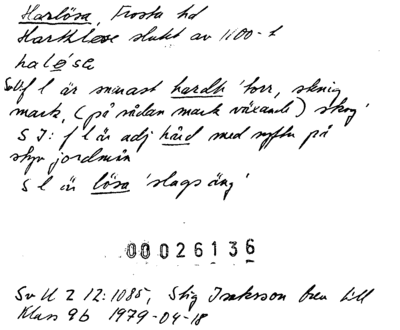 Harlösa, Frosta hd
Harthløse slutet av 1100-t
haḷøsa
S U f l är snarast hardh 'torr, stenig
mark, (på sådan mark växande) skog'
S I: f l är adj hård med syftn på
styv jordmån
S l är lösa 'slags äng'
00026136
Sv U Z 12:1085, Stig Isaksson brev till
Klass 9b 1979-04-18